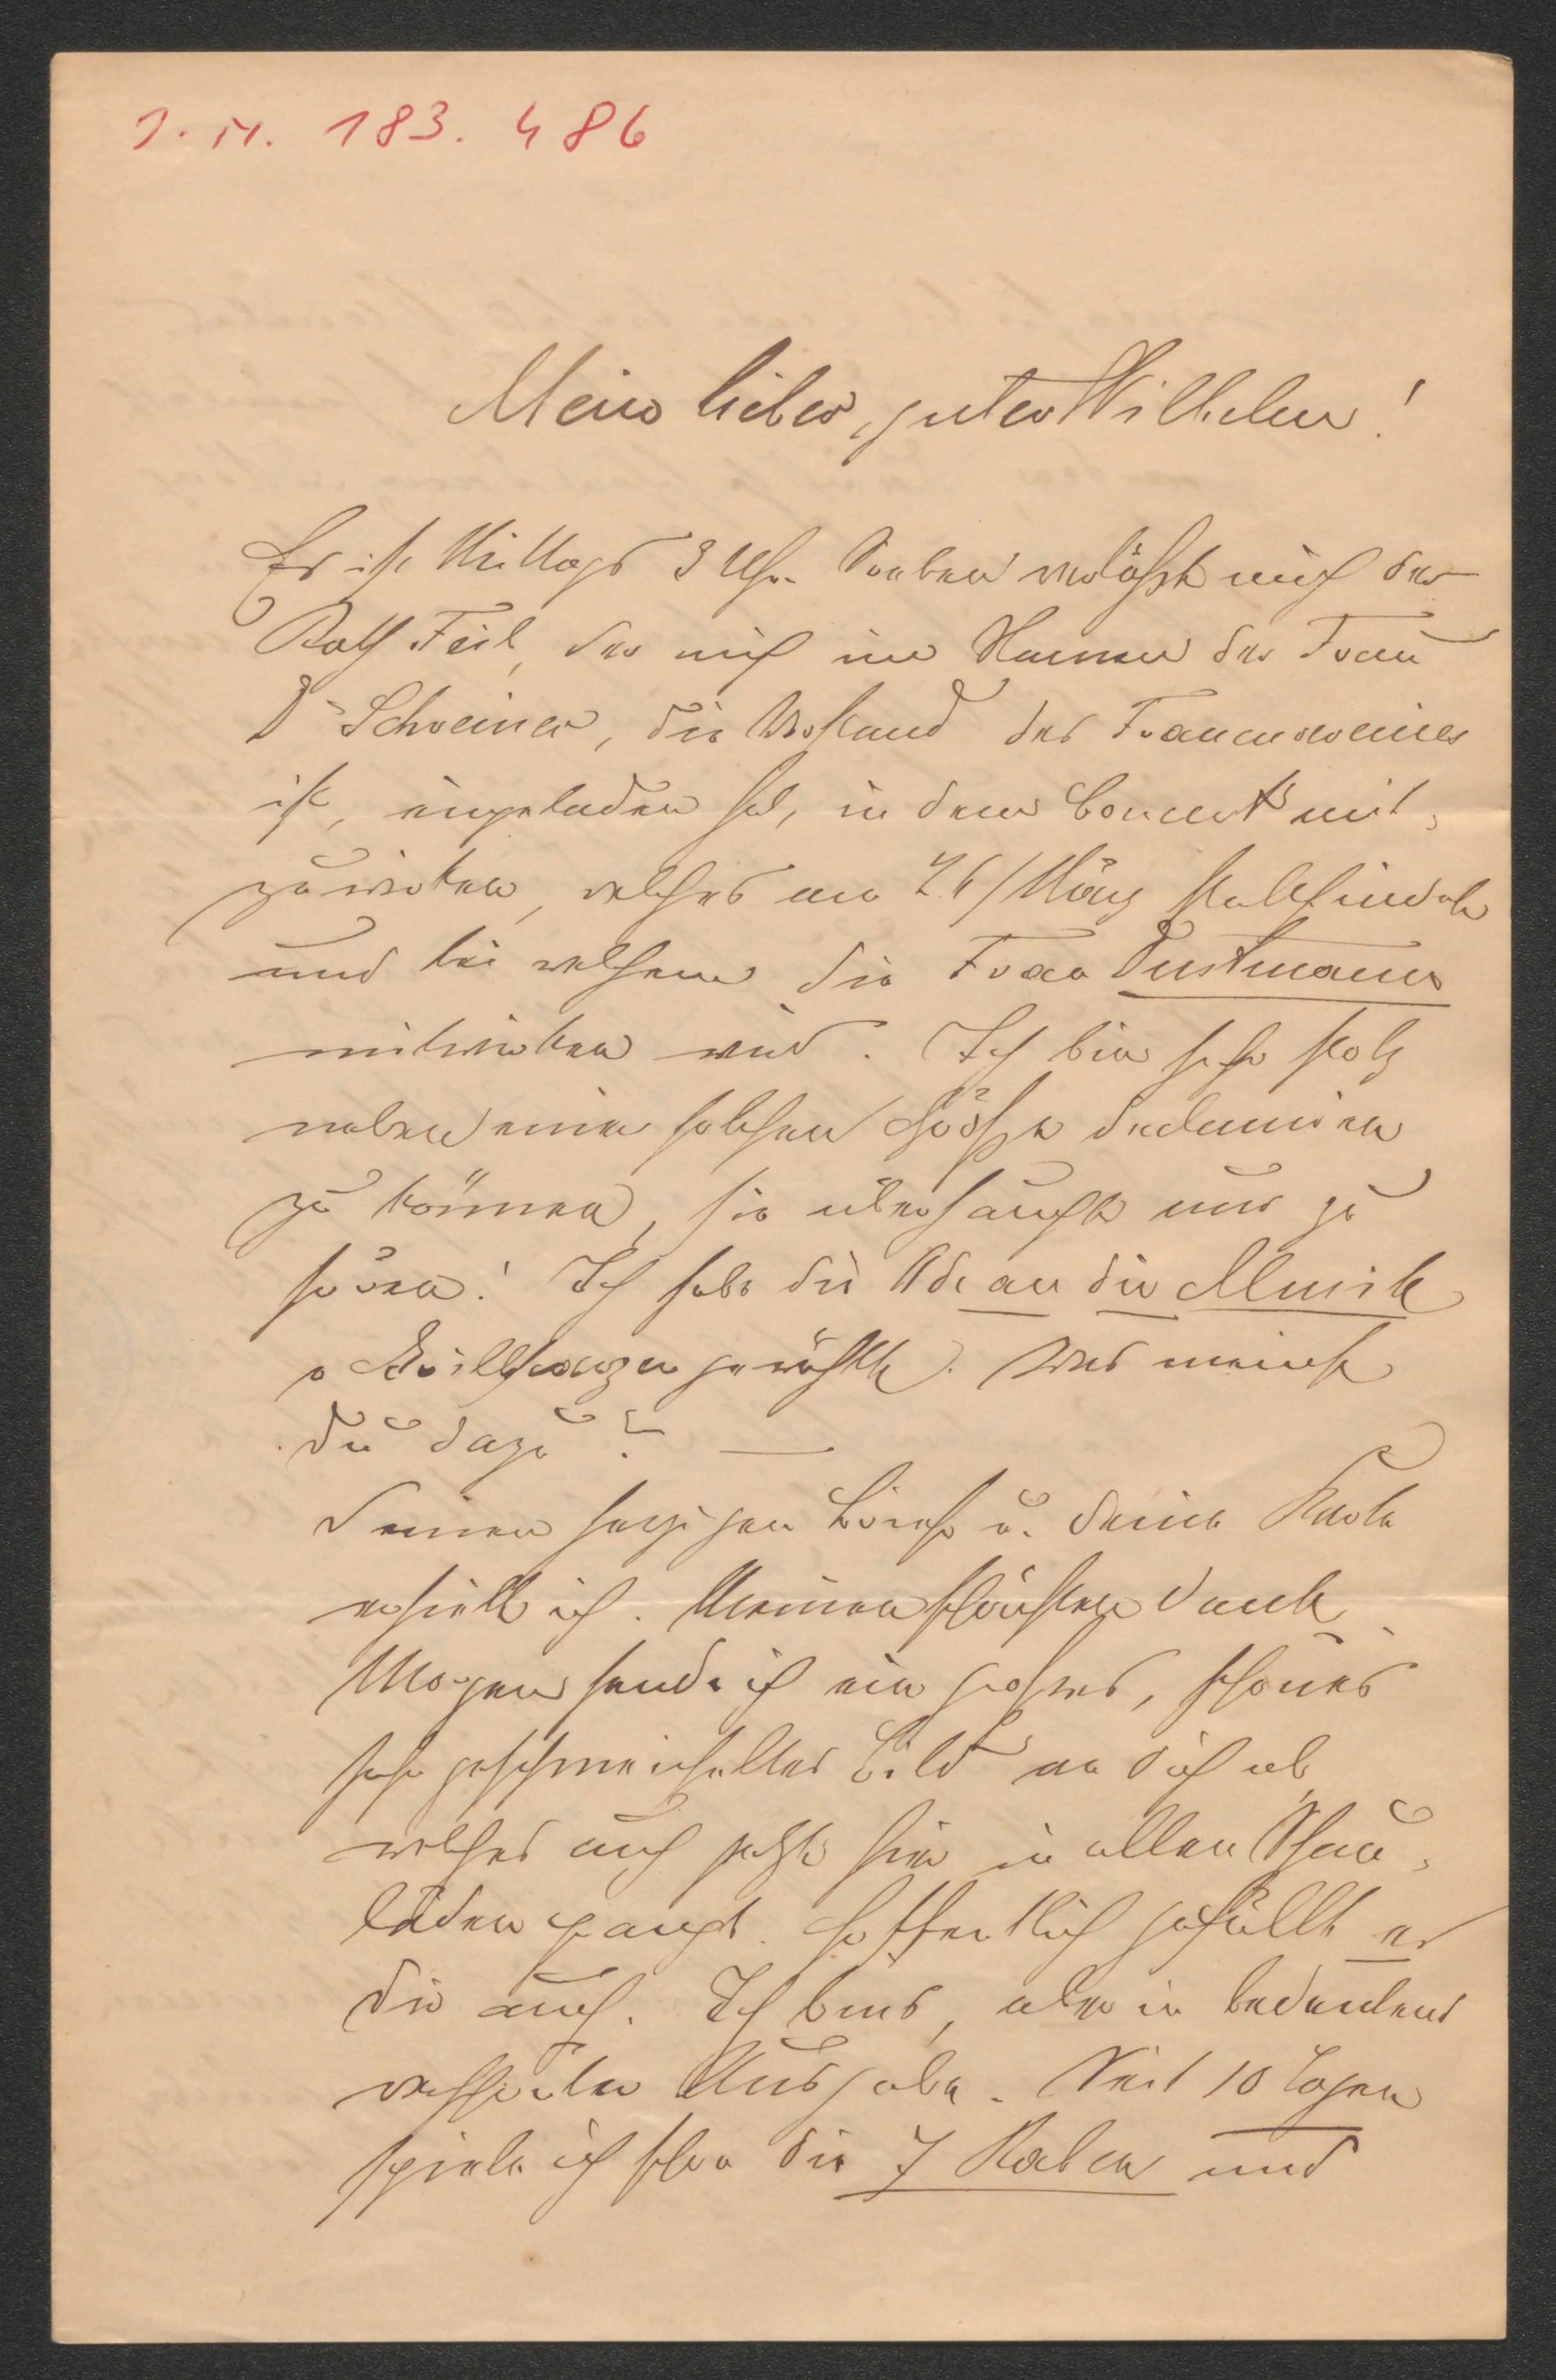 J. N. 183.486
Mein lieber, guter Wilhelm!
Es ist Mittags 3 Uhr. Soeben verläßt mich der
Rath Feil, der mich im Namen der Frau
Dr Schreiner, die Vorstand des Frauenvereines
ist, eingeladen hat, in dem Concert mit,
zuwirken, welches am 26/März stattfindet
und bei welchem die Frau Dustmann
mitwirken wird. Ich bin sehr stolz
neben einer solchen Größe declamiren
zu können, sie überhaupt nur zu
hören! Ich habe die Ode an die Musik
v Grillparzer gewählt. Was meinst
du dazu? —
Deinen herzigen Brief u. deine Karte
erhielt ich. Meinen schönsten Dank.
Morgen sende ich ein großes, schönes
sehr geschmeicheltes Bild an dich ab
welches auch jetzt hier in allen Schau,
läden prangt. Hoffentlich gefällt es
dir auch. Ich bins, aber in bedeutend
verschönter Ausgabe. Seit 10 Tagen
spiele ich schon die 7 Raben und